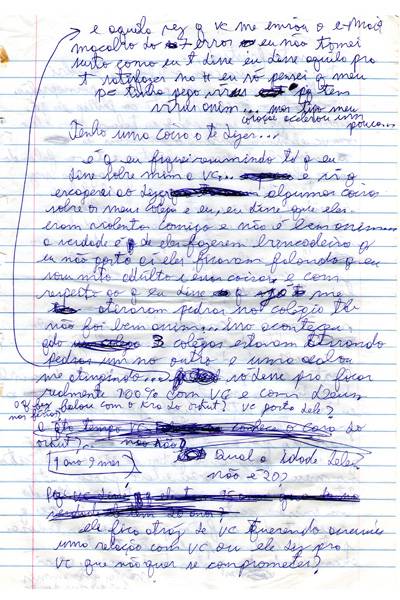 e aquela vez q vc me enviou o e-mail
macabro do terror eu não tomei
susto como eu t disse eu disse aquilo pra
t satisfazer na H eu só pensei q meu
pc tinha pego vírus pq tem
vírus assim... mas tipo meu
coração acelerou um
pouco...
Tenho uma coisa a te dizer...
é q eu fiquei resumindo td q eu
disse sobre mim a vc... e vi q
exagerei ao dizer algumas coisas
sobre os meus colegas e eu, eu disse que eles
eram violentos comigo e não é bem assim
a verdade é q eles fazem brincadeira q
eu não gosto aí eles ficaram falando q eu
sou mto adulto e essas coisas e com
respeito ao q eu disse q me
atiraram pedras no colégio tb
não foi bem assim... isso aconteceu
qdo 3 colegas estavam atirando
pedras um no outro e uma acabou
me atingindo... só disse pra ficar
realmente 100% com vc e com Deus
falou com o kra do orkut? vc gosta dele?
o q fez
nas férias
a qto tempo vc conhece o cara do
orkut? não não?
1 ano 9 mês
Qual a idade dele?
não é 20?
ele fica atrás de vc querendo
uma relação com vc ou ele diz pra
vc que não quer se comprometer?